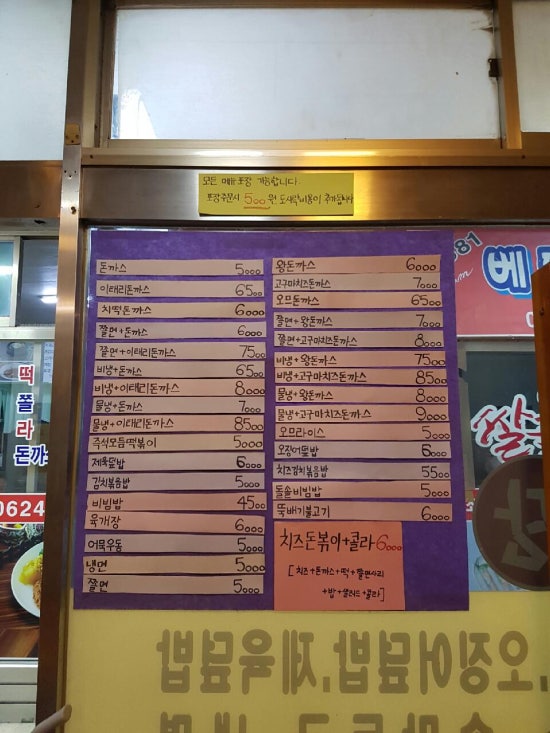 모든 메뉴 포장 가능합니다.
포장주문시 500원 도시락비용이 추가됩니다
돈까스 5000
이태리돈까스 6500
치떡돈까스 6000
쫄면+돈까스 6000
쫄면+이태리돈까스 7500
비냉+돈까스 6500
비냉+이태리돈까스 8000
물냉+돈까스 7000
물냉+이태리돈까스 8500
즉석모듬떡볶이 5000
제육덮밥 6000
김치볶음밥 5000
비빔밥 4500
육개장 6000
어묵우동 5000
냉면 5000
쫄면 5000
왕돈까스 6000
고구마치즈돈까스 7000
오므돈까스 6500
쫄면+왕돈까스 7000
쫄면+고구마치즈돈까스 8000
비냉+왕돈까스 7500
비냉+고구마치즈돈까스 8500
물냉+왕돈까스 8000
물냉+고구마치즈돈까스 9000
오므라이스 5000
오징어덮밥 6000
치즈김치볶음밥 5500
돌솥비빔밥 5000
뚝배기불고기 6000
치즈돈볶이+콜라 6000
[치즈+돈까스+떡+쫄면사리
+밥+샐러드+콜라]
떡
쫄
라
돈까스
0624
881
베
쌀
오징어덮밥, 제육덮밥